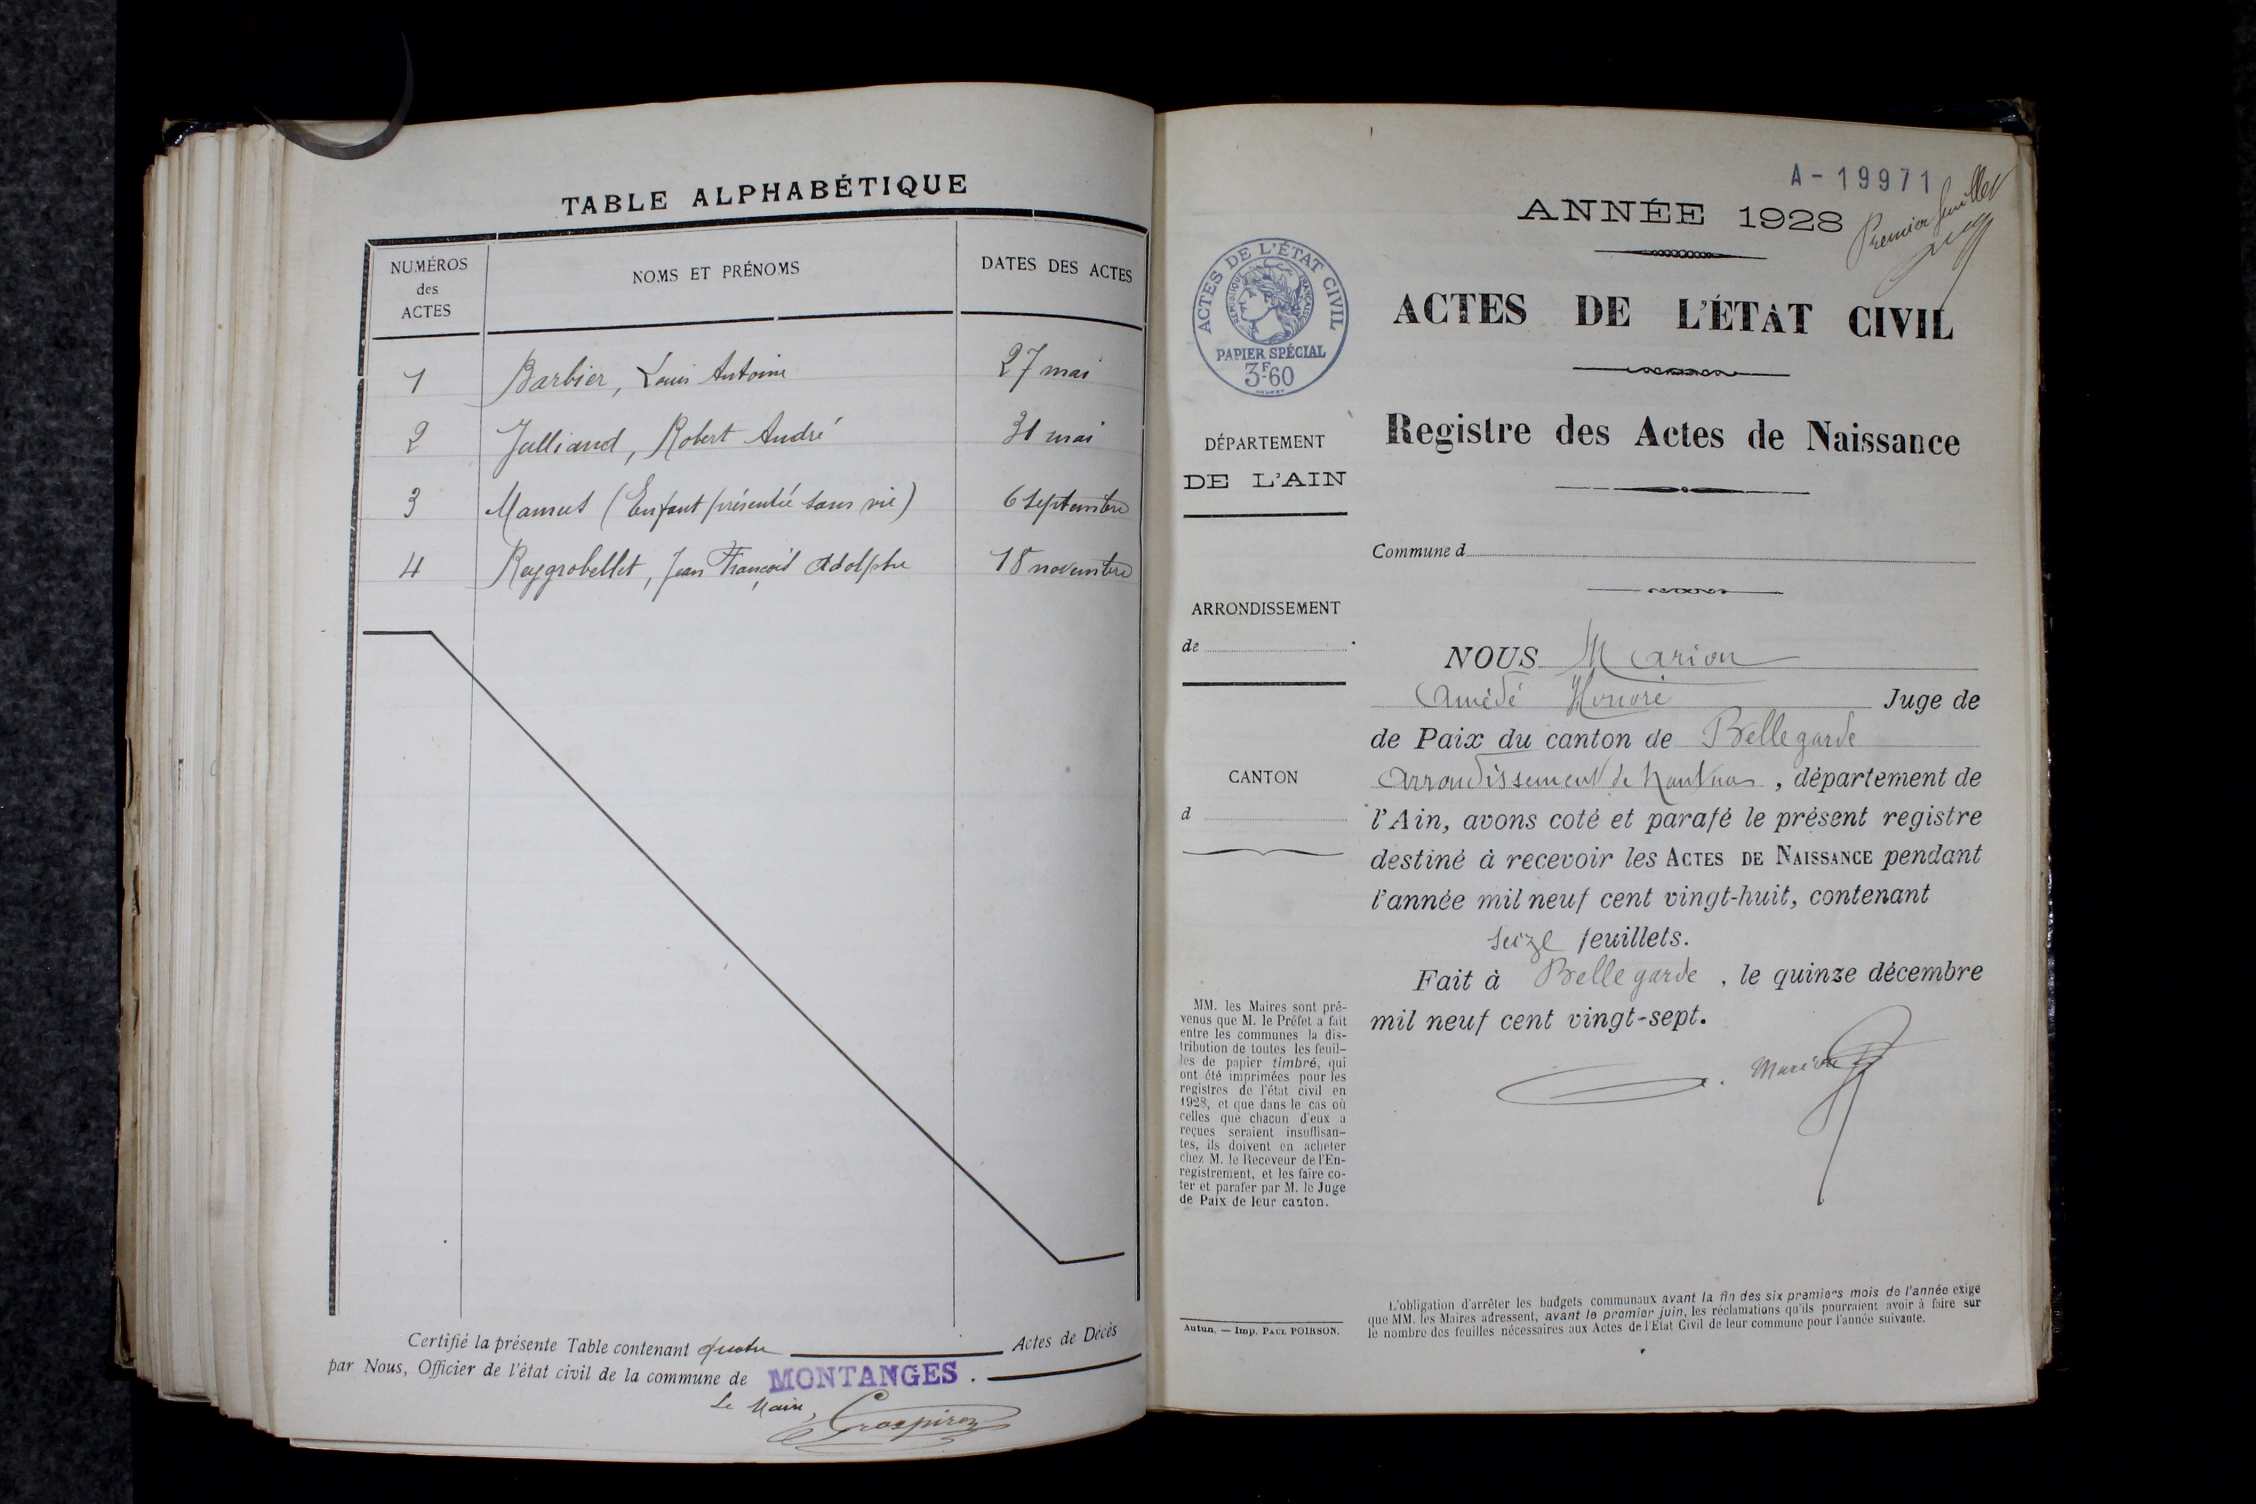 TABLE ALPHABÉTIQUE
NUMÉROS des ACTES
NOMS ET PRÉNOMS
DATES DES ACTES
1 Barbier, Louis Antoine 27 mai
2 Julliand, Robert André 31 mai
3 Mamet (Enfant présenté sans vie) 6 septembre
4 Reygrobellet, Jean François Adolphe 18 novembre
Certifié la présente Table contenant quatre Actes de Décès
par Nous, Officier de l'état civil de la commune de MONTANGES.
Le Maire,
Grospiron
A-19971
Premier feuillet
ANNÉE 1928
ACTES DE L'ÉTAT CIVIL
RÉPUBLIQUE FRANÇAISE
PAPIER SPÉCIAL
3F60
ACTES DE L'ÉTAT CIVIL
Registre des Actes de Naissance
DÉPARTEMENT
DE L'AIN
Commune d
ARRONDISSEMENT
de
CANTON
d
NOUS Marion
Amédé Honoré Juge de
de Paix du canton de Bellegarde
Arrondissement de Nantua, département de
l'Ain, avons coté et parafé le présent registre
destiné à recevoir les ACTES DE NAISSANCE pendant
l'année mil neuf cent vingt-huit, contenant
seize feuillets.
Fait à Bellegarde, le quinze décembre
mil neuf cent vingt-sept.
Marion
MM. les Maires sont pré-
venus que M. le Préfet a fait
entre les communes la dis-
tribution de toutes les feuil-
les de papier timbré, qui
ont été imprimées pour les
registres de l'état civil en
1928, et que dans le cas où
celles que chacun d'eux a
reçues seraient insuffisan-
tes, ils doivent en acheter
chez M. le Receveur de l'En-
registrement, et les faire co-
ter et parafer par M. le Juge
de Paix de leur canton.
Autun. — Imp. PAUL POIRSON.
L'obligation d'arrêter les budgets communaux avant la fin des six premiers mois de l'année exige
que MM. les Maires adressent, avant le premier juin, les réclamations qu'ils pourraient avoir à faire sur
le nombre des feuilles nécessaires aux Actes de l'Etat Civil de leur commune pour l'année suivante.